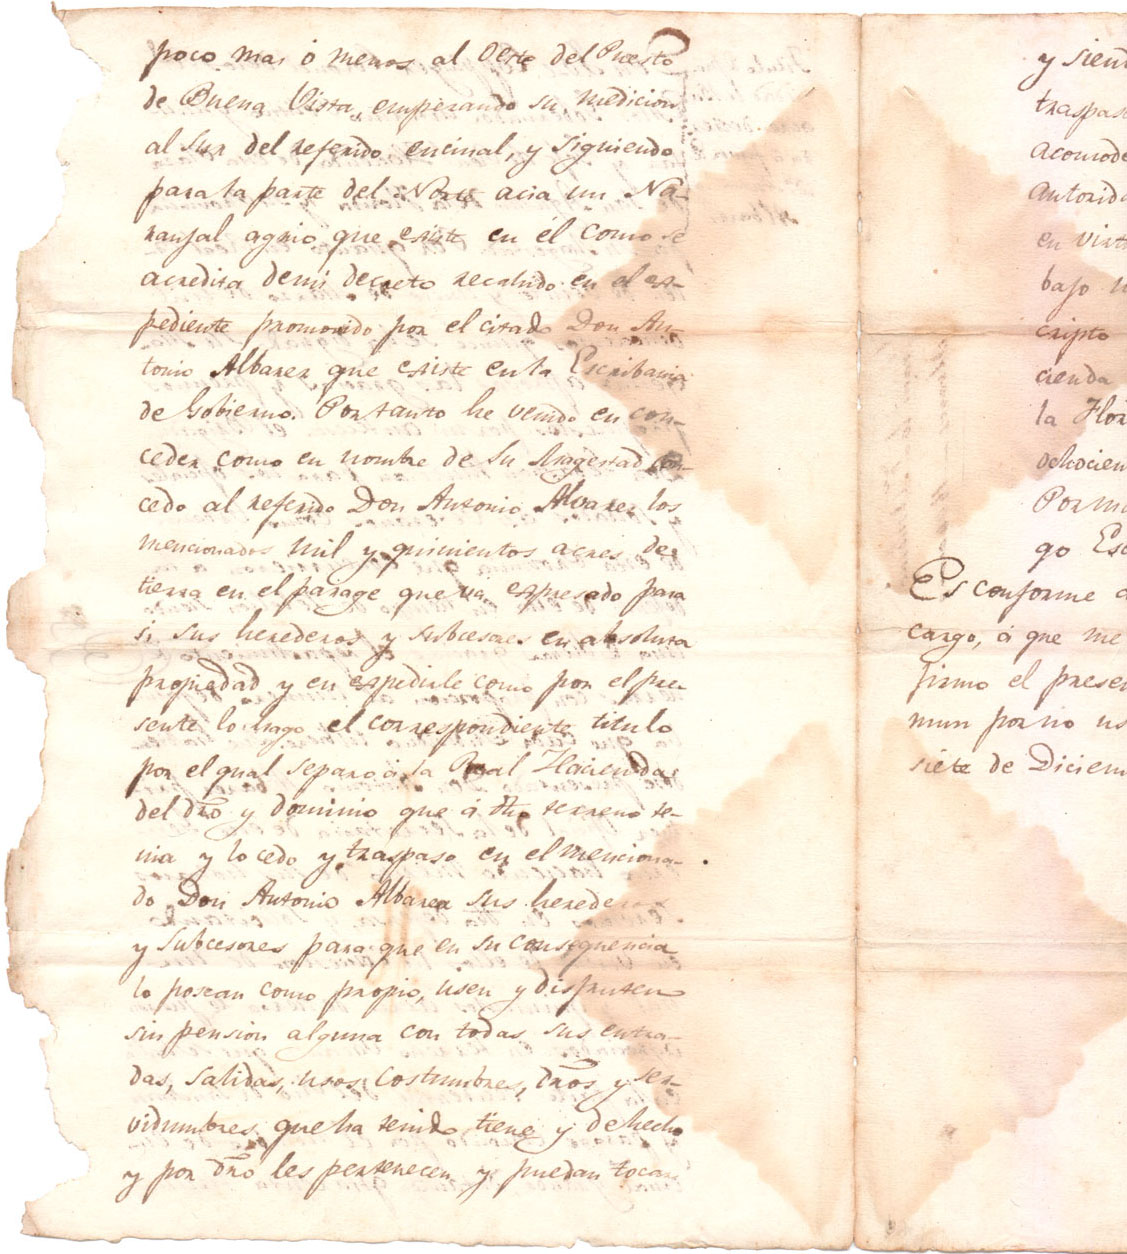 poco mas ó menos al Oeste del Puesto
de Buena Vista, empezando su medicion
al Sur del referido encinal, y siguiendo
para la parte del Norte acia un Na-
ranjal agrio que existe en él como se
acredita de mi decreto recahido en el es-
pediente promovido por el citado Don An-
tonio Albarez que existe en la Escribania
de Gobierno. Por tanto he venido en con-
ceder como en nombre de Su Magestad con-
cedo al referido Don Antonio Alvarez los
mencionados mil y quinientos acres de
tierra en el parage que va espresado para
si sus herederos y subcesores en absoluta
propiedad y en espedirle como por el pre-
sente lo hago el correspondiente titulo
por el qual separo á la Real Hacienda
del dro y dominio que á dho terreno te-
nia y lo cedo y traspaso en el menciona-
do Don Antonio Albarez sus heredero
y Subcesores para que en su consequencia
lo posean como propio, usen y disfruten
sin pension alguna con todas sus entra-
das, salidas, usos, costumbres, dros, y ser-
vidumbres que ha tenido tiene y de hecho
y por dro les pertenecen y puedan tocar
y siend
traspas
acomode
autorida
en virt
bajo
cripto
cienda
la Flor
ochocien
Por m
go Esc
Es conforme a
cargo, á que me
firmo el presen
mun por no us
siete de Diciem